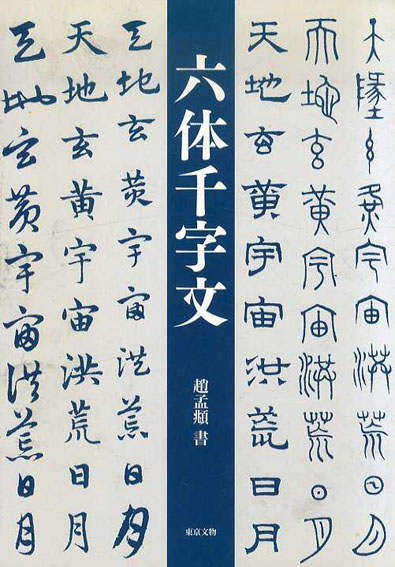 天地玄黃宇宙洪荒日月
天地玄黃宇宙洪荒日月
天地玄黃宇宙洪荒日月
六体千字文
趙孟頫 書
東京文物
天地玄黃宇宙洪荒日月
天地玄黃宇宙洪荒日月
天地玄黃宇宙洪荒日月